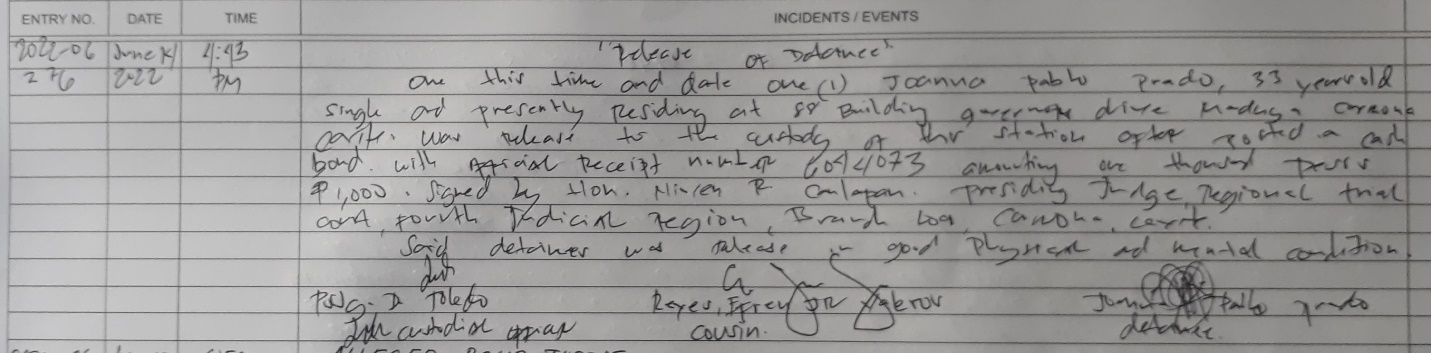 ENTRY NO. DATE TIME INCIDENTS / EVENTS
2022-06 June 4:43 "Release of Detainee"
276 2022 PM One this time and date one (1) Joanna Pablo Prado, 33 years old
single and presently Residing at Building governors drive Maduya Carmona
cavite. was release to the custody of this station after posted a cash
bond with official Receipt number amounting one thousand pesos
₱1,000. Signed by Hon. R Presiding Judge, Regional trial
court, fourth Judicial Region, Branch Carmona, cavite.
Said detainee was release in good physical and mental condition
PSSg. D Toledo Reyes, Efrey JR Joanna Pablo prado
custodial cousin. detainee